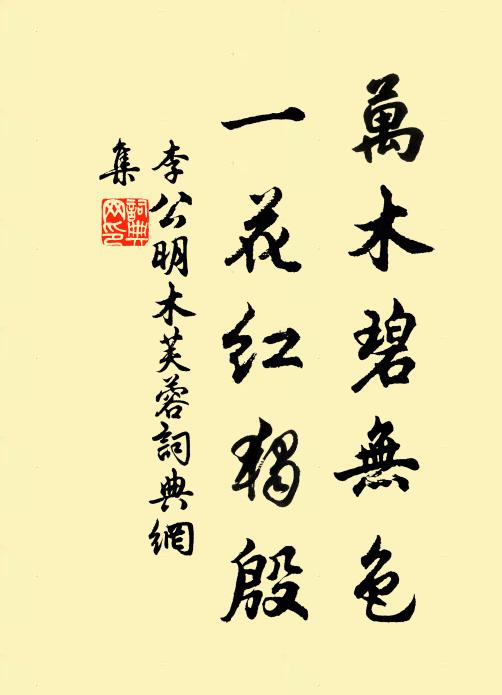 萬木碧無色
一花红獨殷
李公明木芙蓉詞典網
集
詞典網印